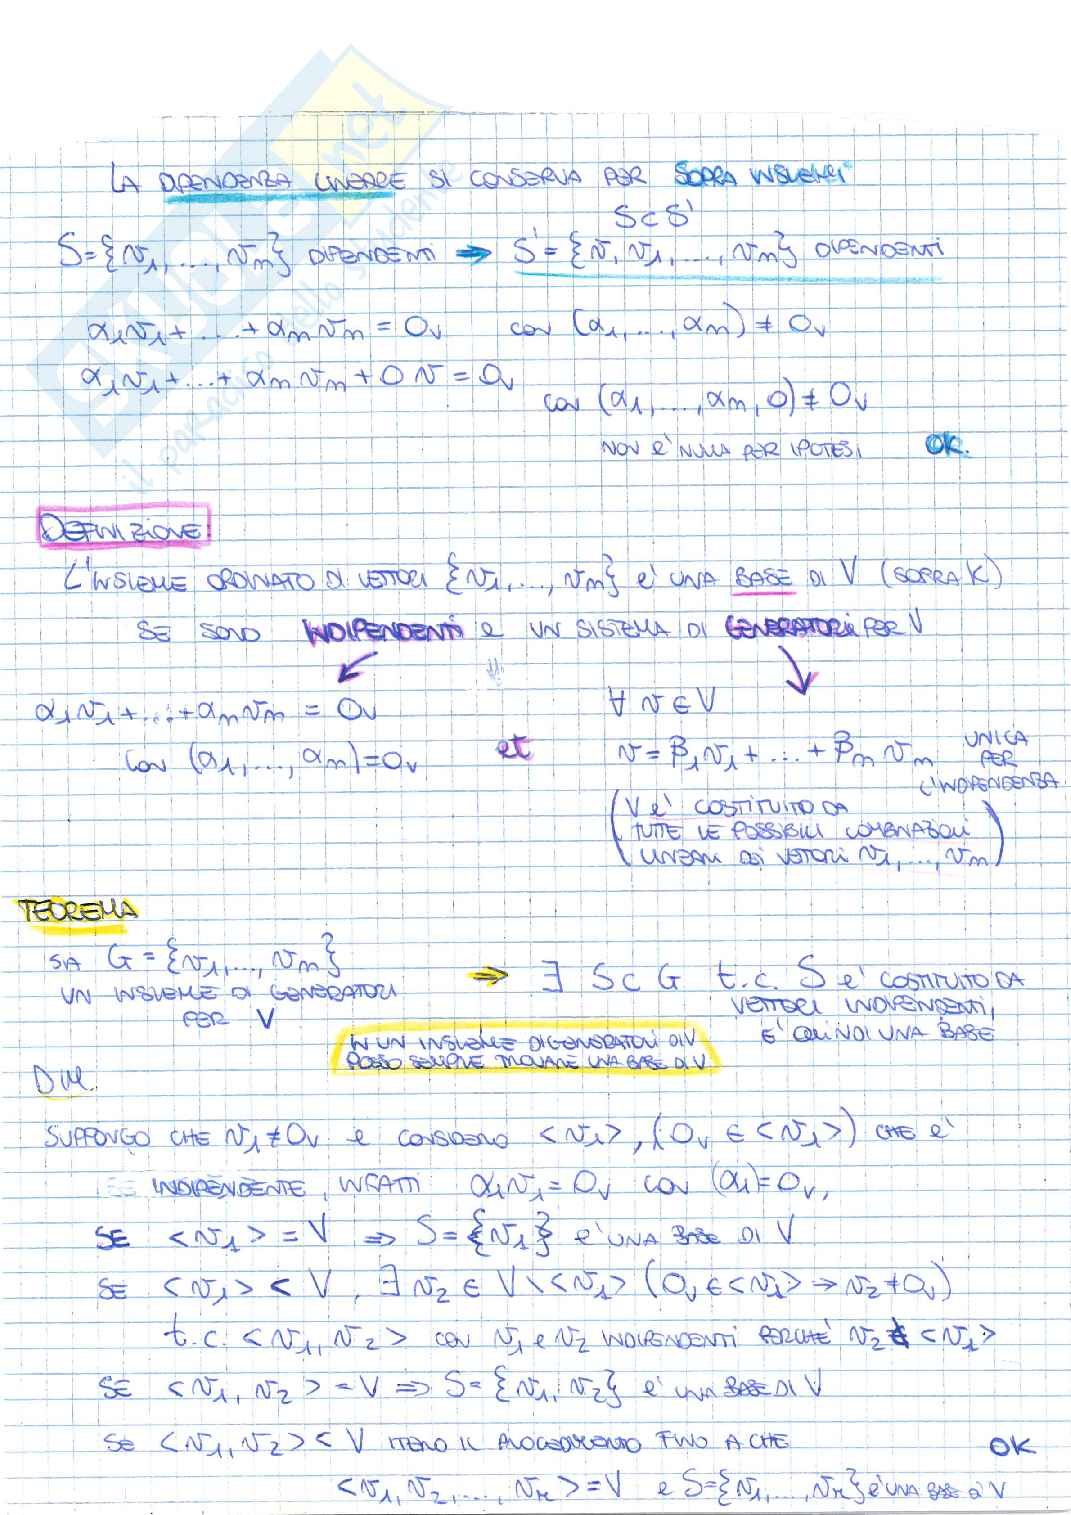 LA DIPENDENZA LINEARE SI CONSERVA PER SOPRA INSIEMI
S ⊂ S'
S = {v₁, ..., vₙ} DIPENDENTI ⇒ S' = {v, v₁, ..., vₙ} DIPENDENTI
α₁v₁ + ... + αₙvₙ = 0ᵥ con (α₁, ..., αₙ) ≠ 0ᵥ
α₁v₁ + ... + αₙvₙ + 0v = 0ᵥ
con (α₁, ..., αₙ, 0) ≠ 0ᵥ
NON E' NULLA PER IPOTESI OK.
DEFINIZIONE:
L'INSIEME ORDINATO DI VETTORI {v₁, ..., vₙ} E' UNA BASE DI V (SOPRA K)
SE SONO INDIPENDENTI E UN SISTEMA DI GENERATORI PER V
α₁v₁ + ... + αₙvₙ = 0ᵥ
con (α₁, ..., αₙ) = 0ᵥ
et
∀ v ∈ V
v = β₁v₁ + ... + βₙvₙ UNICA PER L'INDIPENDENZA
(V E' COSTITUITO DA
TUTTE LE POSSIBILI COMBINAZIONI
LINEARI DEI VETTORI v₁, ..., vₙ)
TEOREMA
SIA G = {v₁, ..., vₙ}
UN INSIEME DI GENERATORI
PER V
⇒ ∃ S ⊂ G t.c. S E' COSTITUITO DA
VETTORI INDIPENDENTI,
E' QUINDI UNA BASE
IN UN INSIEME DI GENERATORI DI V
POSSO SEMPRE TROVARE UNA BASE DI V
DIM.
SUPPONGO CHE v₁ ≠ 0ᵥ E CONSIDERO <v₁>, (0ᵥ ∈ <v₁>) CHE E'
INDIPENDENTE, INFATTI α₁v₁ = 0ᵥ con (α₁) = 0ᵥ,
SE <v₁> = V ⇒ S = {v₁} E' UNA BASE DI V
SE <v₁> < V, ∃ v₂ ∈ V \ <v₁> (0ᵥ ∈ <v₁> → v₂ ≠ 0ᵥ)
t.c. <v₁, v₂> con v₁ e v₂ INDIPENDENTI PERCHÈ v₂ ∉ <v₁>
SE <v₁, v₂> = V ⇒ S = {v₁, v₂} E' UNA BASE DI V
SE <v₁, v₂> < V ITERO IL PROCEDIMENTO FINO A CHE OK
<v₁, v₂, ..., vᵣ> = V e S = {v₁, ..., vᵣ} E' UNA BASE DI V
SKUOLA.net
il paradiso dello studente